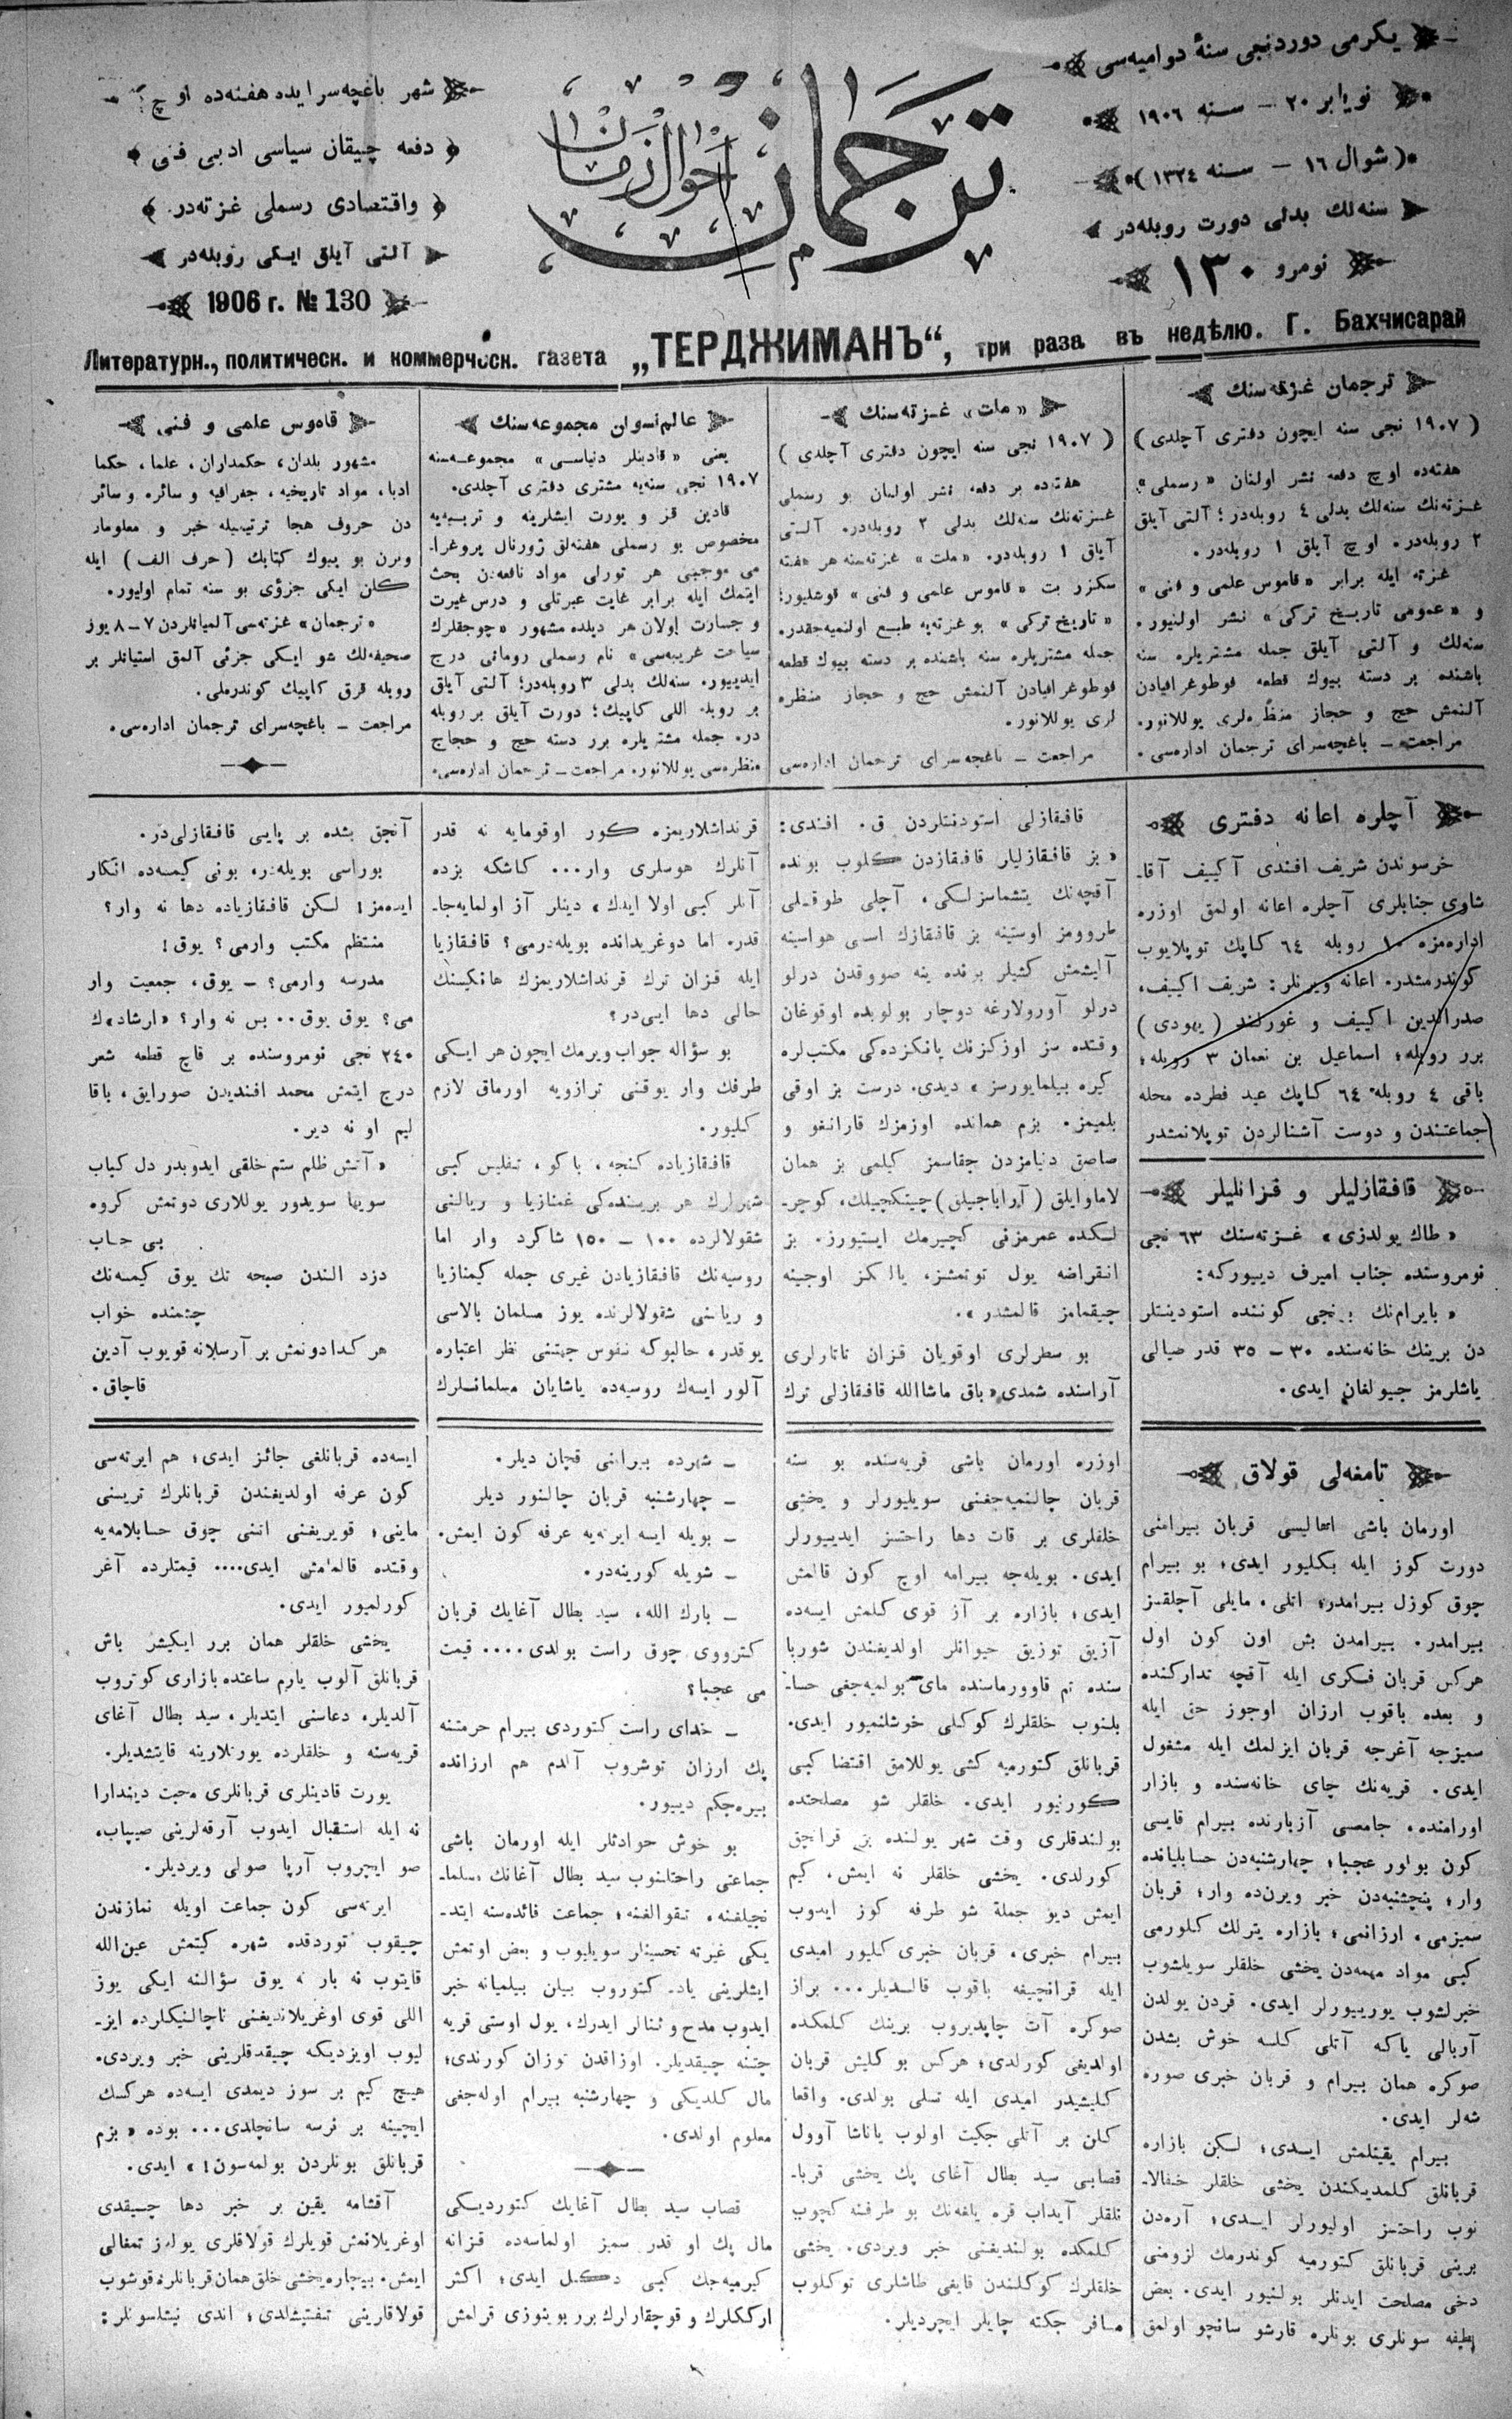 یكرمی دوردنجی سنهٔ دوامیه‌سی
نویابر ٢٠ — سنه ١٩٠٦
(شوال ١٦ — سنه ١٣٢٤)
سنه‌لك بدلی دورت روبله‌در
نومرو ١٣٠
ترجمان
احوال زمان
شهر باغچه‌سرایده هفته‌ده اوچ
دفعه چیقان سیاسی ادبی فنی
واقتصادی رسملی غزته‌در.
آلتی آیلق ایكی روبله‌در
1906 г. № 130
Литературн., политическ. и коммерческ. газета „ТЕРДЖИМАНЪ“, три раза въ недѣлю. Г. Бахчисарай
ترجمان غزته‌سنك
(١٩٠٧ نجی سنه ایچون دفتری آچلدی)
هفته‌ده اوچ دفعه نشر اولنان «رسملی»
غزته‌نك سنه‌لك بدلی ٤ روبله‌در؛ آلتی آیلق
٢ روبله‌در. اوچ آیلق ١ روبله‌در.
غزته ایله برابر «قاموس علمی و فنی»
و «عمومی تاریخ تركی» نشر اولنیور.
سنه‌لك و آلتی آیلق جمله مشتریلره سنه
باشنده بر دسته بیوك قطعه فوطوغرافیادن
آلنمش حج و حجاز منظره‌لری یوللانور.
مراجعت — باغچه‌سرای ترجمان اداره‌سی.
«ملت» غزته‌سنك
(١٩٠٧ نجی سنه ایچون دفتری آچلدی)
هفته‌ده بر دفعه نشر اولنان بو رسملی
غزته‌نك سنه‌لك بدلی ٢ روبله‌در. آلتی
آیلق ١ روبله‌در. «ملت» غزته‌سنه هر هفته
سكزر بت «قاموس علمی و فنی» قوشلیور؛
«تاریخ تركی» بو غزته‌یه طبع اولنمیه‌جقدر.
جمله مشتریلره سنه باشنده بر دسته بیوك قطعه
فوطوغرافیادن آلنمش حج و حجاز منظره
لری یوللانور.
مراجعت — باغچه‌سرای ترجمان اداره‌سی
عالم نسوان مجموعه‌سنك
یعنی «قادینلر دنیاسی» مجموعه‌سنه
١٩٠٧ نجی سنه‌یه مشتری دفتری آچلدی.
قادین قز و یورت ایشلرینه و تربیه‌یه
مخصوص بو رسملی هفته‌لق ژورنال پروغرا-
می موجبنی هر تورلی مواد نافعه‌دن بحث
ایتمك ایله برابر غایت عبرتلی و درس غیرت
و جسارت اولان هر دیلده مشهور «چوجقلرك
سیاحت غریبه‌سی» نام رسملی رومانی درج
ایدییور. سنه‌لك بدلی ٣ روبله‌در؛ آلتی آیلق
بر روبله اللی كاپیك؛ دورت آیلق بر روبله
در. جمله مشتریلره برر دسته حج و حجاج
منظره‌سی یوللانور. مراجعت — ترجمان اداره‌سی.
قاموس علمی و فنی
مشهور بلدان، حكمداران، علما، حكما
ادبا، مواد تاریخیه، جغرافیه و سائره و سائر
دن حروف هجا ترتیبیله خبر و معلومار
ویرن بو بیوك كتابك (حرف الف) ایله
كلن ایكی جزؤی بو سنه تمام اولیور.
«ترجمان» غزته‌سی آلمیانلردن ٧—٨ یوز
صحیفه‌لك شو ایكی جزئی آلمق استیانلر بر
روبله قرق كاپیك كوندرملی.
مراجعت — باغچه‌سرای ترجمان اداره‌سی.
آچلره اعانه دفتری
خرسوندن شریف افندی آكییف آقا-
شاوی جنابلری آچلره اعانه اولمق اوزره
اداره‌مزه ١٠ روبله ٦٤ كاپك توپلایوب
كوندرمشدر. اعانه ویرنلر: شریف اكییف،
صدرالدین اكییف و غورلند (یهودی)
برر روبله؛ اسماعیل بن نعمان ٣ روبله؛
باقی ٤ روبله ٦٤ كاپك عید فطرده محله
جماعتندن و دوست آشنالردن توپلانمشدر
قافقازلیلر و قزانلیلر
«طاك یولدزی» غزته‌سنك ٦٣ نجی
نومروسنده جناب امیرف دییوركه:
«بایرام‌نك برنجی كوننده استودینتلر
دن برینك خانه‌سنده ٣٠—٣٥ قدر ضیالی
یاشلرمز جیولغان ایدی.
قافقازلی استودنتلردن ق. افندی:
«بز قافقازلیلر قافقازدن كلوب بونده
آقچه‌نك یتشماسزلكی، آچلی طوقلی
طروومز اوستینه بز قافقازك اسی هواسینه
آلیشمش كشیلر برقده ینه صووقدن درلو
درلو آورولارغه دوچار بولوبده اوقوغان
وقتده سز اوزكزنك یانكزده‌كی مكتب‌لره
كیره بیلمایورسز» دیدی. درست بز اوقی
بلمیمز. بزم همانده اوزمزك قارانغو و
صاصق دنیامزدن چقاسمز كیلمی بز همان
لاماوایلق (آراباجیلق) چیتكچیلك، كوچر-
لكده عمرمزنی كچیرمك ایستیورز. بز
انقراضه یول توتمشز، یالكز اوجینه
چیقمامز قالمشدر».
بو سطرلری اوقویان قزان تاتارلری
آراسنده شمدی «باق ماشاالله قافقازلی ترك
قرنداشلاریمزه كور اوقومایه نه قدر
آنلرك هوسلری وار... كاشكه بزده
آنلر كبی اولا ایدك» دینلر آز اولمایه‌جا-
قدر. اما دوغریدانده بویله‌درمی؟ قافقازیا
ایله قزان ترك قرنداشلاریمزك هانكیسنك
حالی دها ایی‌در؟
بو سؤاله جواب ویرمك ایچون هر ایكی
طرفك وار یوقنی ترازویه اورماق لازم
كلیور.
قافقازیاده كنجه، باكو، تفلیس كبی
شهرلرك هر بریسنده‌كی غمنازیا و ریالنی
شقولالرده ١٠٠ — ١٥٠ شاكرد وار اما
روسیه‌نك قافقازیادن غیری جمله كیمنازیا
و ریالنی شقولالرنده یوز مسلمان بالاسی
یوقدر. حالبوكه نفوس جهتنی نظر اعتباره
آلور ایسه‌ك روسیه‌ده یاشایان مسلمانلرك
آنجق بشده بر پایی قافقازلی‌در.
بوراسی بویله‌در. بونی كیمسه‌ده انكار
ایده‌مز! لكن قافقازیاده دها نه وار؟
منتظم مكتب وارمی؟ یوق!
مدرسه وارمی؟ — یوق، جمعیت وار
می؟ یوق یوق.. بس نه وار؟ «ارشاد»ك
٢٤٠ نجی نومروسنده بر قاچ قطعه شعر
درج ایتمش محمد افندیدن صورایق، باقا
لیم او نه دیر.
«آتش ظلم ستم خلقی ایدوبدر دل كباب
سویها سویدور یوللاری دوتمش كروه
بی حساب
دزد الندن صبحه تك یوق كیمسه‌نك
چشمنده خواب
هر كدا دونمش بر آرسلانه قویوب آدین
قاچاق.
تامغه‌لی قولاق
اورمان باشی اهالیسی قربان بیرامنی
دورت كوز ایله بكلیور ایدی؛ بو بیرام
چوق كوزل بیرامدر؛ اتلی، مایلی آچلقسز
بیرامدر. بیرامدن بش اون كون اول
هركس قربان فكری ایله آقچه تداركنده
و بعده باقوب ارزان اوجوز حق ایله
سمیزجه آغرجه قربان ایزلمك ایله مشغول
ایدی. قریه‌نك چای خانه‌سنده و بازار
اورامنده، جامعسی آزبارنده بیرام قایسی
كون بولور عجبا؛ چهارشنبه‌دن حسابلیانده
وار؛ پنچشنبه‌دن خبر ویرن‌ده وار؛ قربان
سمیزمی، ارزانمی؛ بازاره یترلك كلورمی
كبی مواد مهمه‌دن یخشی خلقلر سویلشوب
خبرلشوب یورییورلر ایدی. قردن یولدن
آربالی یاكه آتلی كلسه خوش بشدن
صوكره همان بیرام و قربان خبری صوره
شه‌لر ایدی.
بیرام یقینلمش ایدی؛ لكن بازاره
قربانلق كلمدیكندن یخشی خلقلر خفالا-
نوب راحتسز اولیورلر ایدی؛ آره‌دن
برینی قربانلق كتورمیه كوندرمك لزومنی
دخی مصلحت ایدنلر بولنیور ایدی. بعض
لطیفه سونلری بونلره قارشو سانچو اولمق
اوزره اورمان باشی قریه‌سنده بو سنه
قربان چالنمیه‌جغنی سویلیورلر و یخشی
خلقلری بر قات دها راحتسز ایدییورلر
ایدی. بویله‌جه بیرامه اوچ كون قالمش
ایدی؛ بازاره بر آز قوی كلمش ایسه‌ده
آزیق توزیق حیوانلر اولدیغندن شوربا
سنده تم قاوورماسنده مای بولمیه‌جغی حسا-
بلنوب خلقلرك كوكلی خوشلنمیور ایدی.
قربانلق كتورمیه كشی یوللامق اقتضا كبی
كورنیور ایدی. خلقلر شو مصلحتده
بولندقلری وقت شهر یولنده بر قرانچق
كورلدی. یخشی خلقلر نه ایمش، كیم
ایمش دیو جملهٔ شو طرفه كوز ایدوب
بیرام خبری، قربان خبری كلیور امیدی
ایله قرانچیغه باقوب قالدیلر... براز
صوكره آت چاپدیروب برینك كلمكده
اولدیغی كورلدی؛ هركس بو كلیش قربان
كلیشیدر امیدی ایله تسلی بولدی. واقعا
كلن بر آتلی جكیت اولوب یاناشا آوول
قصابی سید بطال آغای پك یخشی قربا-
نلقلر آیداب قره یلغه‌نك بو طرفنه كچوب
كلمكده بولندیغنی خبر ویردی. یخشی
خلقلرك كوكلندن قایغی طاشلری توكلوب
مسافر جكته چایلر ایچردیلر.
— شهرده بیرامنی قچان دیلر.
— چهارشنبه قربان چالنور دیلر
— بویله ایسه ایرته‌یه عرفه كون ایمش.
— شویله كورینه‌در.
— بارك الله، سید بطال آغایك قربان
كترووی چوق راست بولدی.... قیمت
می عجبا؟
— خدای راست كتوردی بیرام حرمتنه
پك ارزان توشروب آلدم هم ارزانده
بیره‌جكم دییور.
بو خوش حوادثلر ایله اورمان باشی
جماعتی راحتلنوب سید بطال آغانك مسلما-
نجیلغنه، تقوالغنه؛ جماعت فائده‌سنه ایتد-
یكی غیرته تحسینلر سویلیوب و بعض اوتمش
ایشلرینی یاد. كتوروب بیلن بیلمیانه خبر
ایدوب مدح و ثنالر ایدرك، یول اوستی قریه
چتنه چیقدیلر. اوزاقدن توزان كورندی؛
مال كلدیكی و چهارشنبه بیرام اوله‌جغی
معلوم اولدی.
قصاب سید بطال آغایك كتوردیكی
مال پك او قدر سمیز اولماسه‌ده قزانه
كیرمیه‌جك كبی دكل ایدی؛ اكثر
ارككلرك و قوچقارلرك برر بوینوزی قرلمش
ایسه‌ده قربانلغی جائز ایدی؛ هم ایرته‌سی
كون عرفه اولدیغندن قربانلرك تریسنی
ماینی؛ قویریغنی اتنی چوق حسابلامه‌یه
وقتده قالمامش ایدی.... قیمتلرده آغر
كورلمیور ایدی.
یخشی خلقلر همان برر ایكیشر باش
قربانلق آلوب یارم ساعتده بازاری كوتروب
آلدیلر. دعاسنی ایتدیلر، سید بطال آغای
قریه‌سنه و خلقلرده یورتلارینه قایتشدیلر.
یورت قادینلری قربانلری محبت دیندارا
نه ایله استقبال ایدوب آرقه‌لرینی صیپاب،
صو ایچروب آرپا صولی ویردیلر.
ایرته‌سی كون جماعت اویله نمازندن
چیقوب توردقده شهره كیتمش عین‌الله
قایتوب نه بار نه یوق سؤالنه ایكی یوز
اللی قوی اوغریلاندیغنی ناچالنیكلرده ایز-
لیوب اویزدیكه چیقدقلرینی خبر ویردی.
هیچ كیم بر سوز دیمدی ایسه‌ده هركسك
ایچینه بر نرسه سانچلدی... بوده «بزم
قربانلق بونلردن بولمه‌سون!» ایدی.
آقشامه یقین بر خبر دها چیقدی
اوغریلانمش قویلرك قولاقلری یولدز تمغالی
ایمش. بیچاره یخشی خلق همان قربانلره قوشوب
قولاقلرینی تفتیشلدی؛ اندی نیشلسونلر: